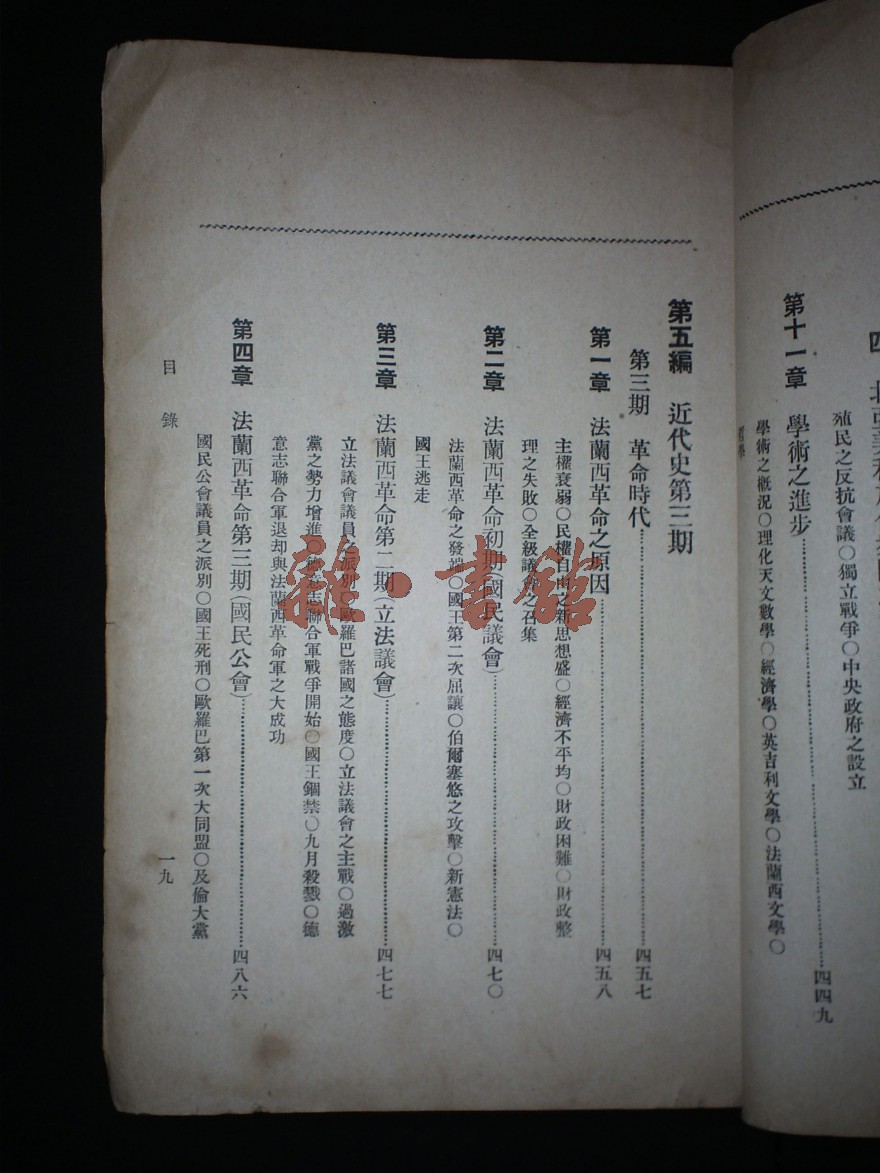 殖民之反抗會議○獨立戰爭○中央政府之設立
第十一章 學術之進步 四四九
學術之概況○理化天文數學○經濟學○英吉利文學○法蘭西文學○
第五編 近代史第三期
第三期 革命時代 四五七
第一章 法蘭西革命之原因 四五八
主權衰弱○民權自由之新思想盛○經濟不平均○財政困難○財政整
理之失敗○全級議會之召集
第二章 法蘭西革命初期(國民議會) 四七〇
法蘭西革命之發端○國王第二次屈讓○伯爾塞悠之攻擊○新憲法○
國王逃走
第三章 法蘭西革命第二期(立法議會) 四七七
立法議會議員之派別○歐羅巴諸國之態度○立法議會之主戰○過激
黨之勢力增進○德意志聯合軍戰爭開始○國王錮禁○九月殺戮○德
意志聯合軍退却與法蘭西革命軍之大成功
第四章 法蘭西革命第三期(國民公會) 四八六
國民公會議員之派別○國王死刑○歐羅巴第一次大同盟○及倫大黨
目錄 一九
雜·書館